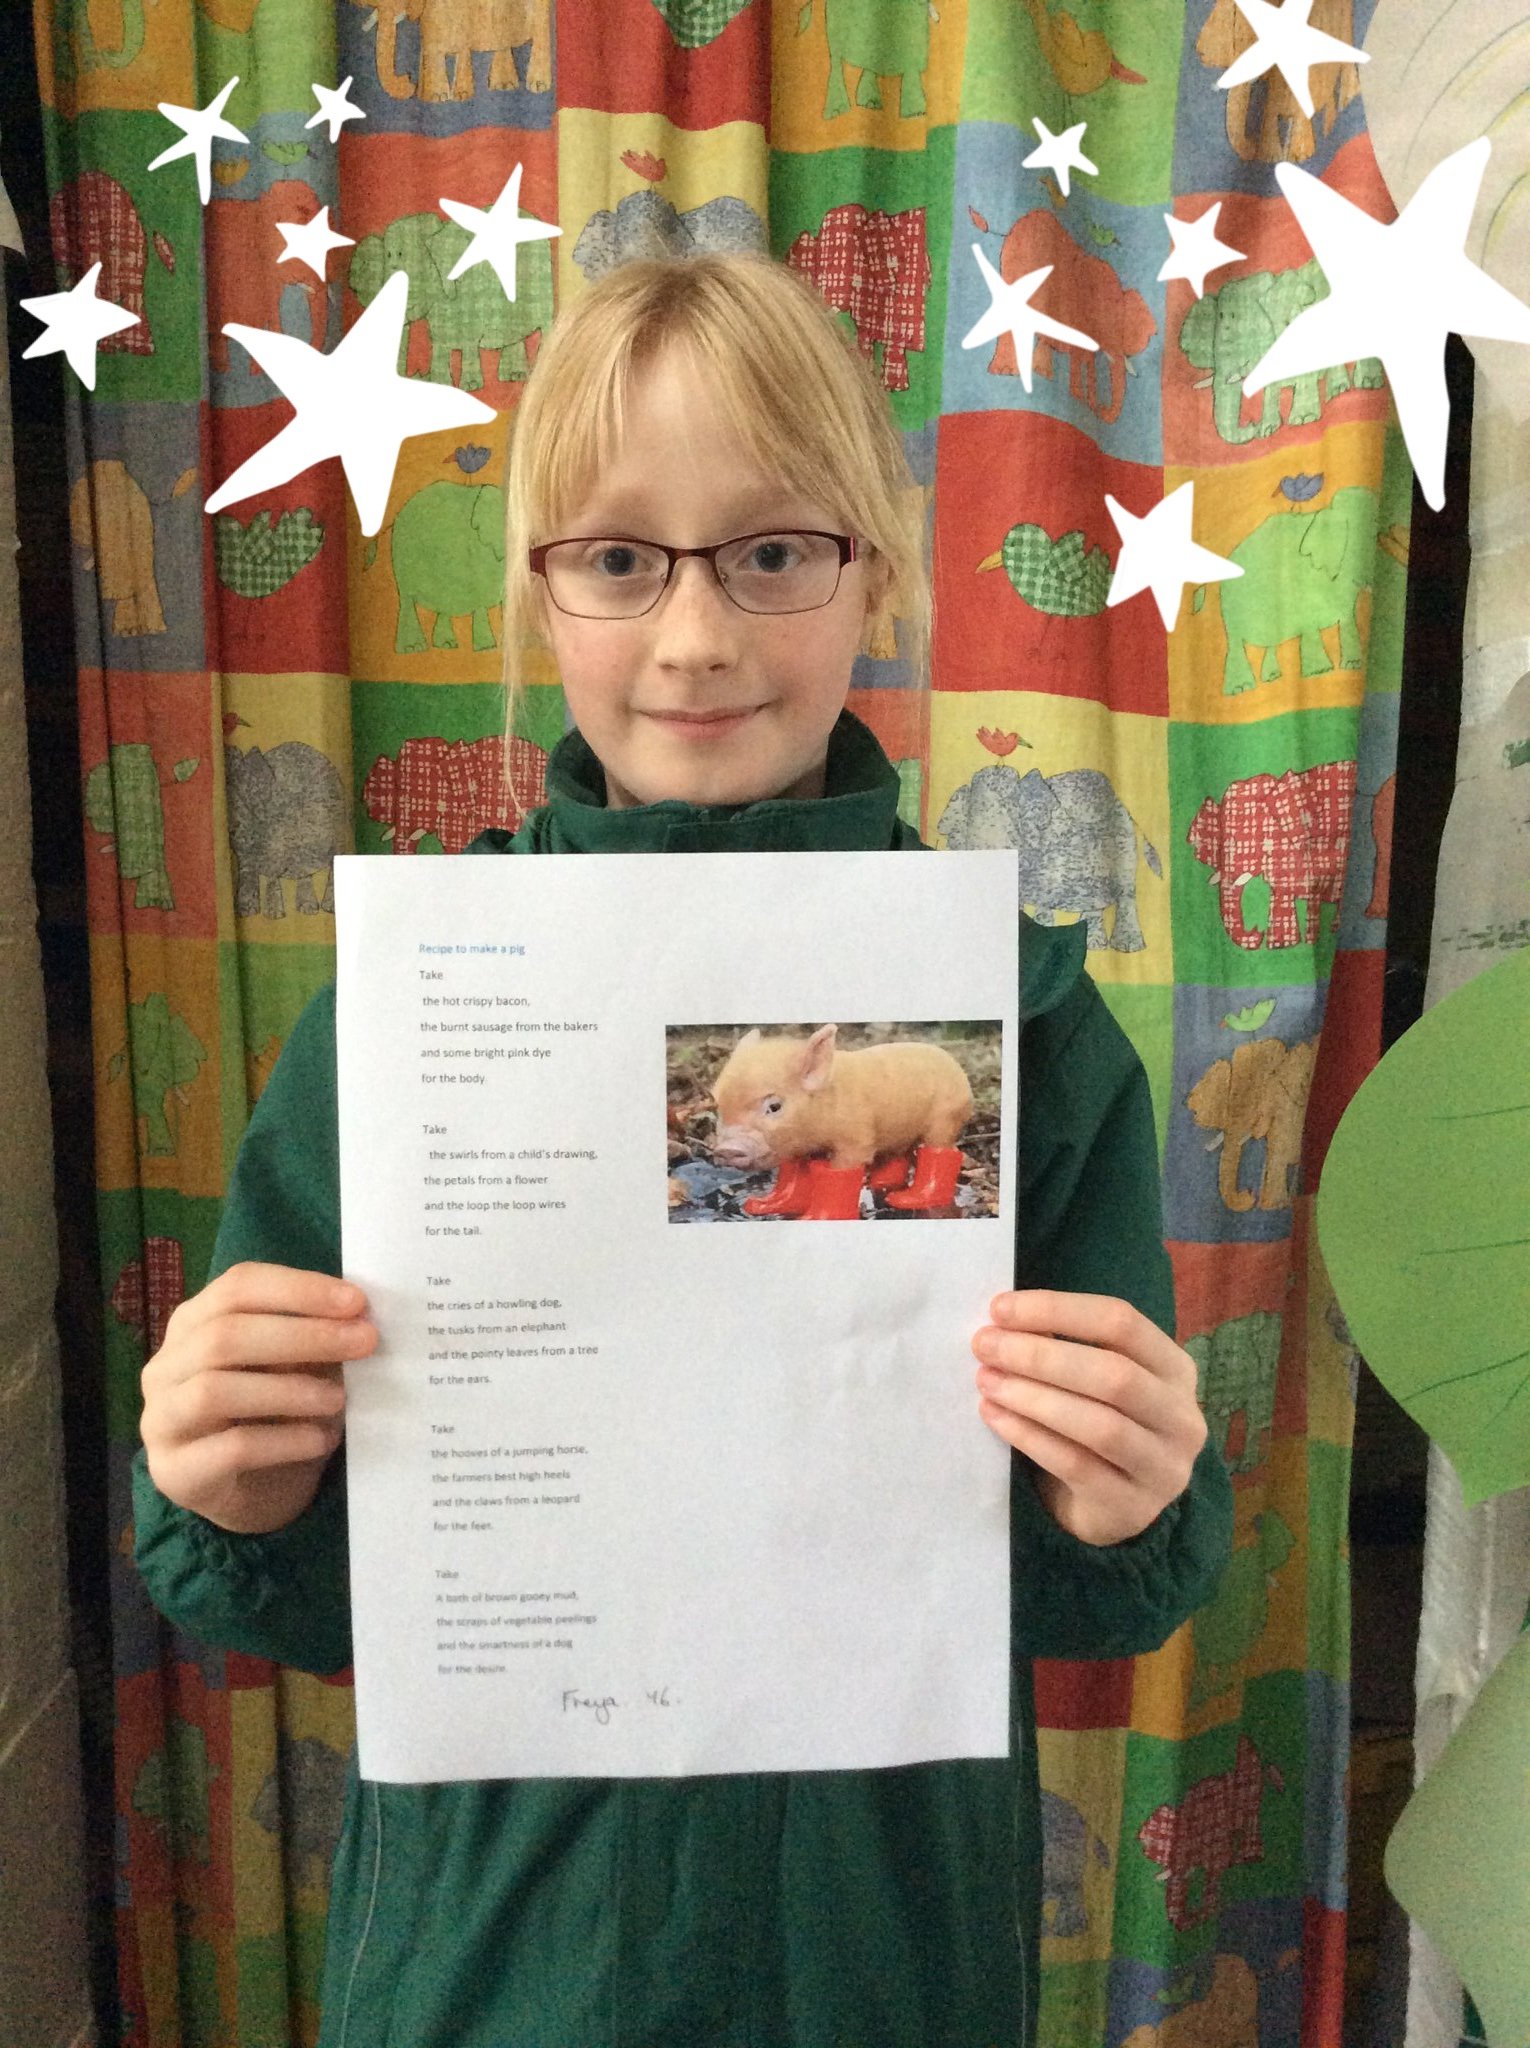 Recipe to make a pig
Take
the hot crispy bacon,
the burnt sausage from the bakers
and some bright pink dye
for the body
Take
the swirls from a child's drawing,
the petals from a flower
and the loop the loop wires
for the tail.
Take
the cries of a howling dog,
the tusks from an elephant
and the pointy leaves from a tree
for the ears.
Take
the hooves of a jumping horse,
the farmers best high heels
and the claws from a leopard
for the feet.
Take
A bath of brown gooey mud,
the scraps of vegetable peelings
and the smartness of a dog
for the desire.
Freya Y6.